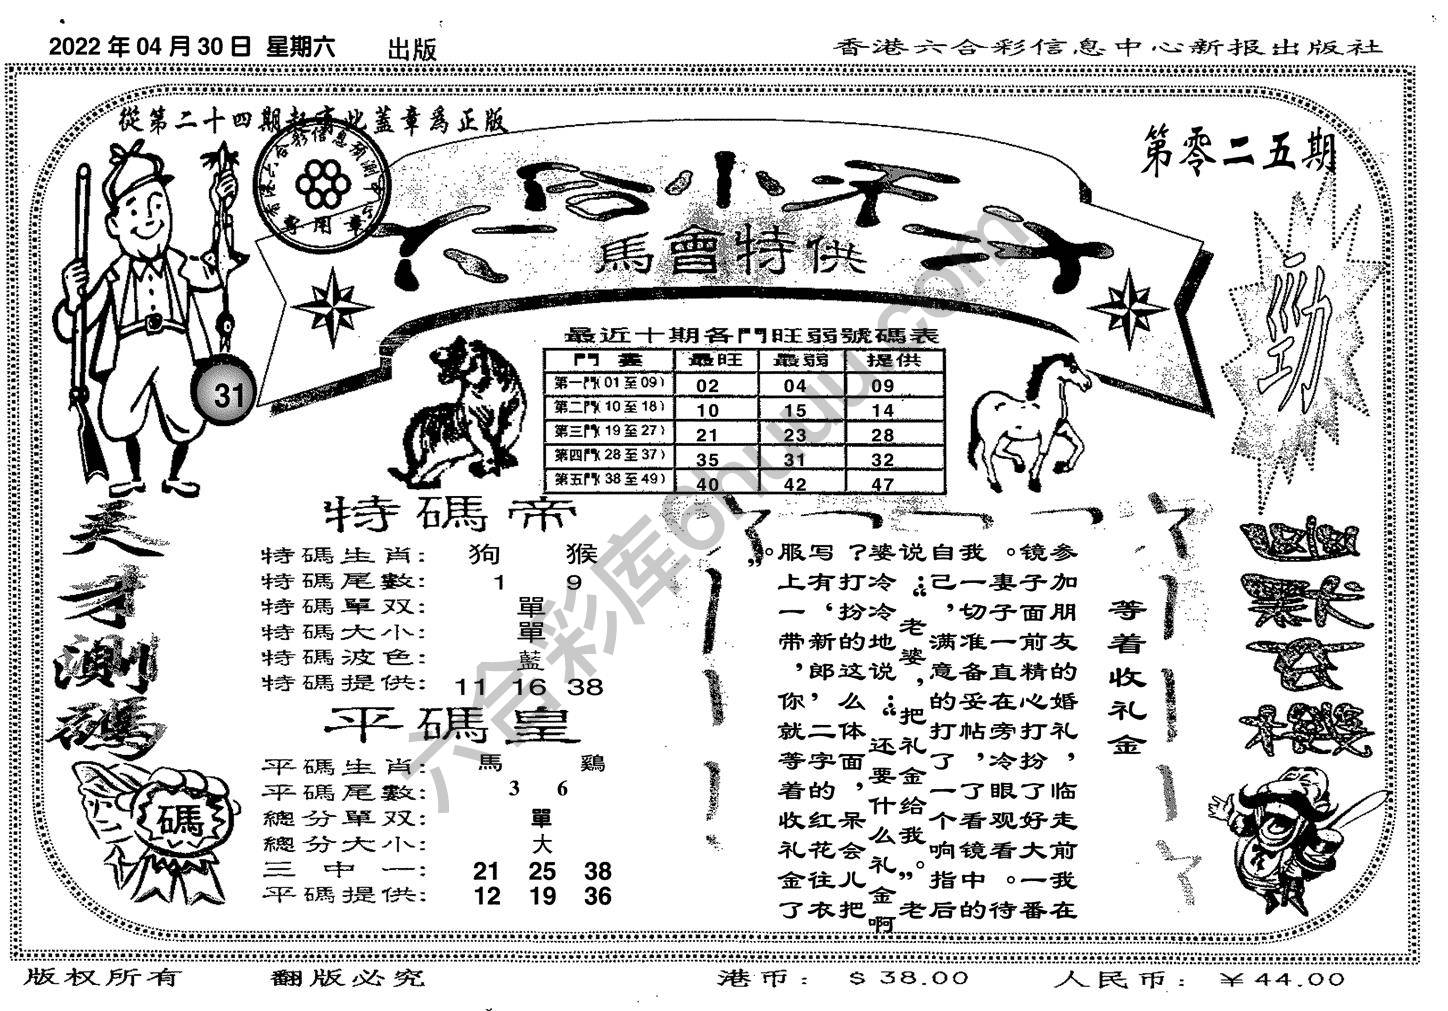 2022 年 04 月 30 日 星期六 出版
香港六合彩信息中心新报出版社
從第二十四期起有此蓋章爲正版
香港六合彩信息预测中心
專用章
第零二五期
六合小天才
馬會特供
勁
31
最近十期各門旺弱號碼表
門 最旺 最弱 提供
第一門(01至09) 02 04 09
第二門(10至18) 10 15 14
第三門(19至27) 21 23 28
第四門(28至37) 35 31 32
第五門(38至49) 40 42 47
天才測碼
特碼帝
特碼生肖: 狗 猴
特碼尾數: 1 9
特碼單双: 單
特碼大小: 單
特碼波色: 藍
特碼提供: 11 16 38
平碼皇
平碼生肖: 馬 鷄
平碼尾數: 3 6
總分單双: 單
總分大小: 大
三中一: 21 25 38
平碼提供: 12 19 36
等着收礼金
参加朋友的婚礼，临走前我在
镜子面前精心打扮了好大一番
。妻子一直在旁，冷眼观看。待
我一切准备妥帖，了看镜中的
自己，满意的打了一个响指后
说：“老婆，把礼金给我。”老
婆冷冷地说：“还要什么礼金啊
？打扮的这么体面，呆会儿把
写有‘新郎’二字的红花往衣
服上一带，你就等着收礼金了
。”
碼
六合彩库6huuu.com
版权所有 翻版必究 港币： $ 38.00 人民币：￥44.00